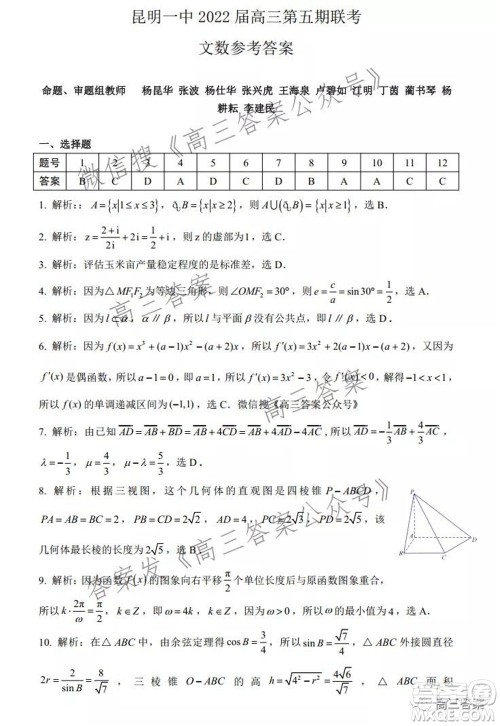 昆明一中 2022 届高三第五期联考
文数参考答案
命题、审题组教师 杨昆华 张波 杨仕华 张兴虎 王海泉 卢碧如 江明 丁茵 蔺书琴 杨
耕耘 李建民
一、选择题
题号 1 2 3 4 5 6 7 8 9 10 11 12
答案 B C D A D C D A C C
1. 解析：：A={x|1≤x≤3}，∁UB={x|x≥2}，则 A∪(∁UB)={x|x≥1}，选 B.
2. 解析：z=(2+i)/2i+2i=1/2+i，则 z 的虚部为1，选 C.
3. 解析：评估玉米亩产量稳定程度的是标准差，选 D.
4. 解析：因为△MF₁F₂为等边三角形，则∠OMF₂=30°，则 e=c/a=sin30°=1/2，选 A.
5. 解析：因为 l⊂α，α∥β，所以 l 与平面 β 没有公共点，即 l∥β，选 D.
6. 解析：因为 f(x)=x³+(a-1)x²-(a+2)x，所以 f′(x)=3x²+2(a-1)x-(a+2)，又因为
f′(x)是偶函数，所以 a-1=0，即 a=1，所以 f′(x)=3x²-3，令 f′(x)<0，解得 -1<x<1，
所以 f(x) 的单调递减区间为 (-1,1)，选 C. 微信搜《高三答案公众号》
7. 解析：由已知 AD=AB+BD=AB+4CD=AB+4AD-4AC，所以 AD=-1/3 AB+4/3 AC，
λ=-1/3，μ=4/3，μ-λ=5/3，选 D.
8. 解析：根据三视图，这个几何体的直观图是四棱锥 P-ABCD，
PA=AB=BC=2，PB=CD=2√2，AD=4，PC=2√3，PD=2√5，该
几何体最长棱的长度为 2√5，选 A.
P
A
B
C
D
9. 解析：因为函数 f(x) 的图象向右平移 π/2 个单位长度后与原函数图象重合，
所以 k·2π/ω=π/2，k∈Z，即 ω=4k，k∈Z，因为 ω>0，所以 ω 的最小值为 4，选 C.
10. 解析：在△ABC 中，由余弦定理得 cosB=3/4，所以 sinB=√7/4，所以△ABC 外接圆直径
2r=2/sinB=8/√7，三棱锥的高 h=√(4²-r²)=4√6/√7，△ABC 面积
微信搜《高三答案公众号》
高三答案
答案发《高三答案公众号》
高三答案
MXQE.COM